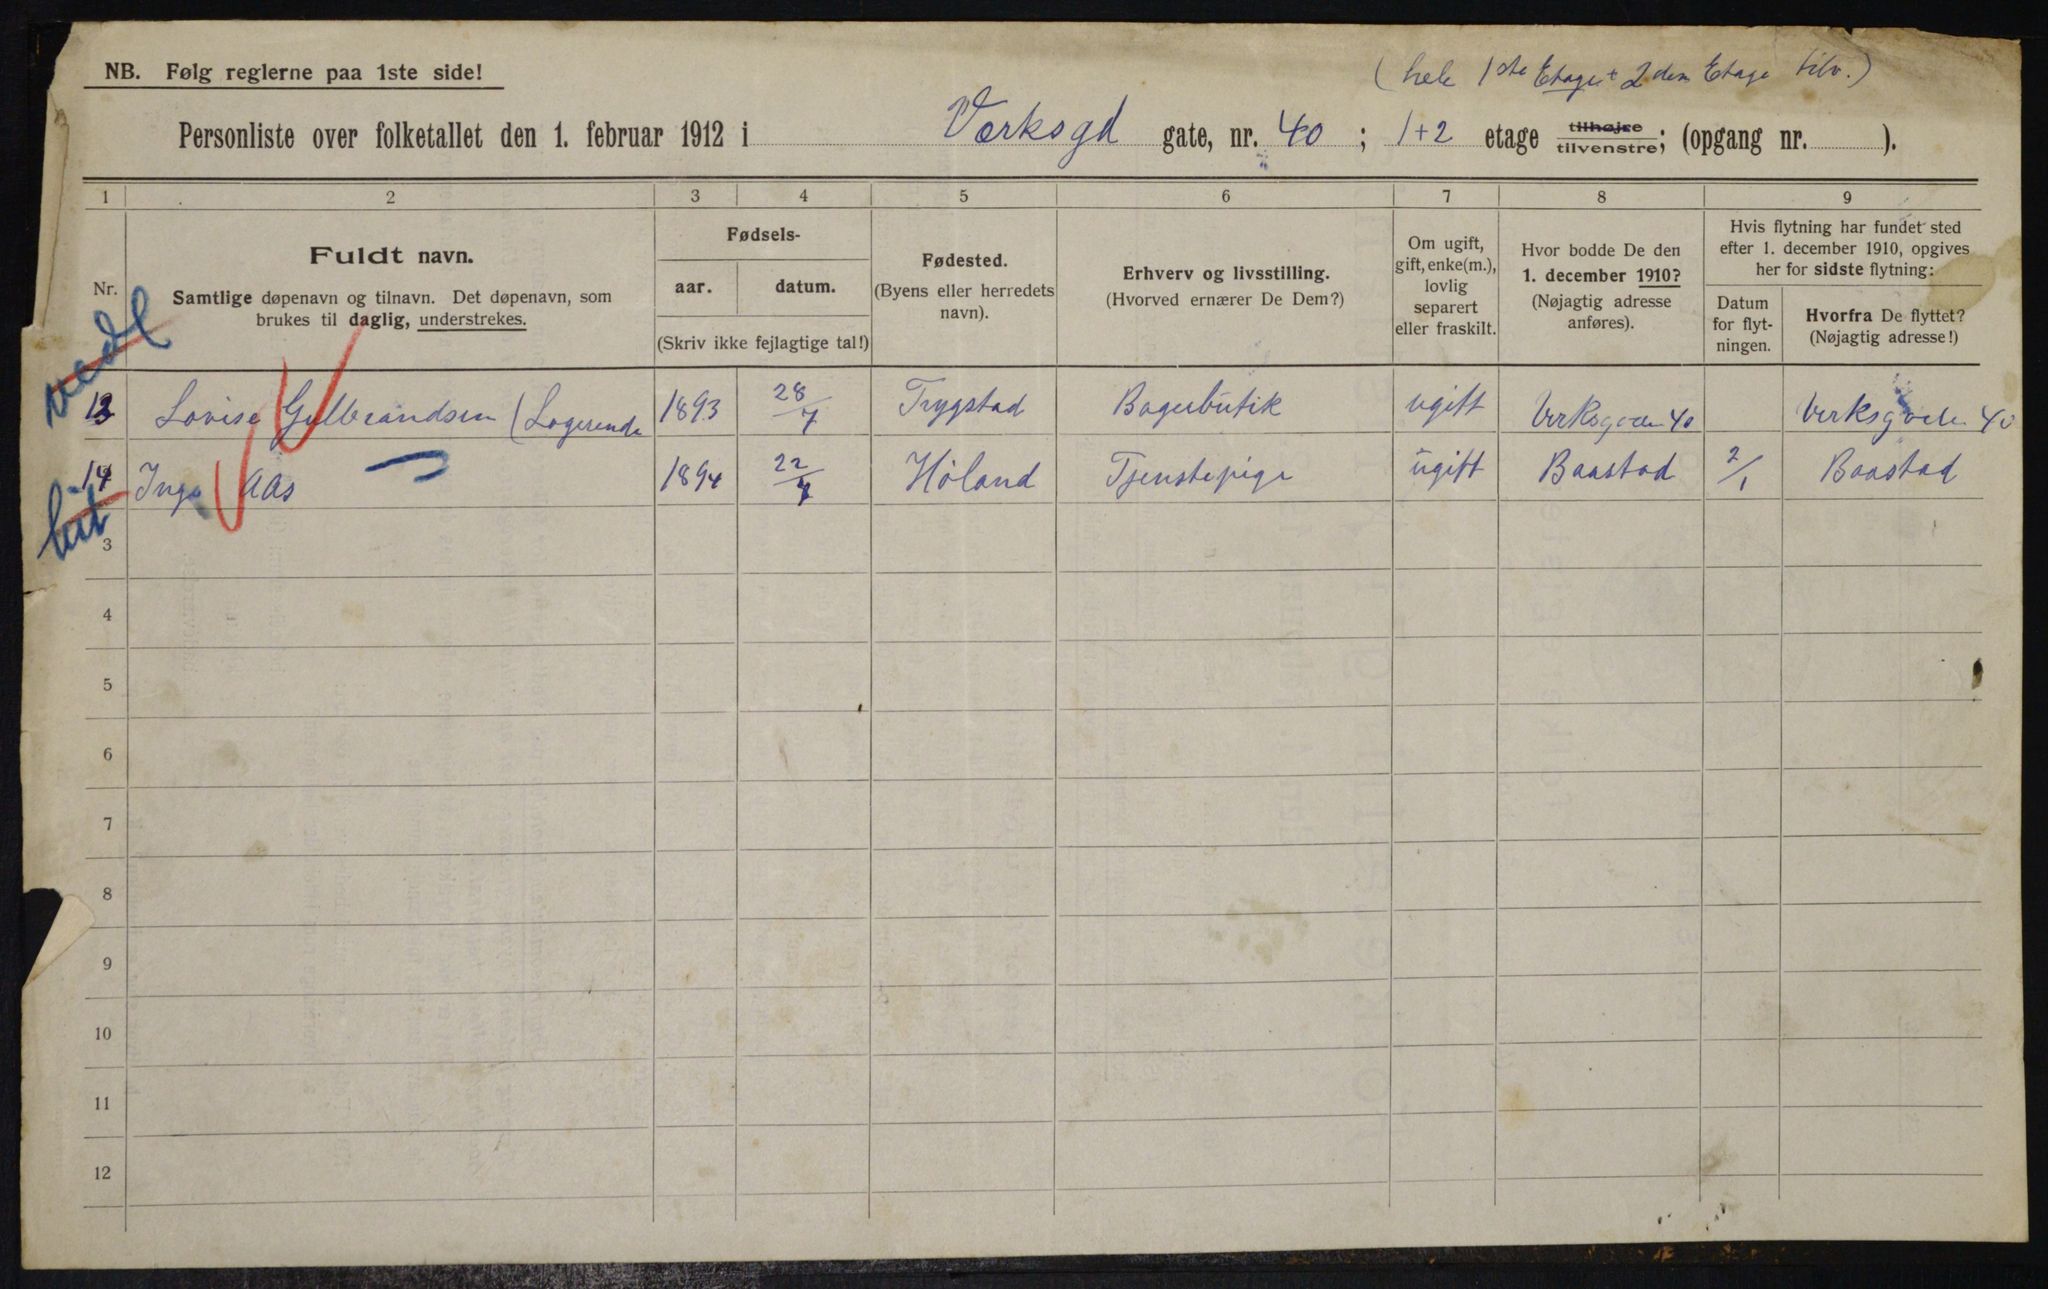 NB. Følg reglerne paa 1ste side!
(hele 1ste Etage + 2den Etage tilv.)
Personliste over folketallet den 1. februar 1912 i Værksgd gate, nr. 40; 1+2 etage tilhøjre tilvenstre; (opgang nr. ).
1 2 3 4 5 6 7 8 9
Nr.
Fuldt navn.
Samtlige døpenavn og tilnavn. Det døpenavn, som
brukes til daglig, understrekes.
Fødsels-
aar. datum.
(Skriv ikke fejlagtige tal!)
Fødested.
(Byens eller herredets
navn).
Erhverv og livsstilling.
(Hvorved ernærer De Dem?)
Om ugift,
gift, enke(m.),
lovlig
separert
eller fraskilt.
Hvor bodde De den
1. december 1910?
(Nøjagtig adresse
anføres).
Hvis flytning har fundet sted
efter 1. december 1910, opgives
her for sidste flytning:
Datum
for flyt-
ningen.
Hvorfra De flyttet?
(Nøjagtig adresse!)
13 Lovise Gulbrandsen (Logerende 1893 28/7 Trygstad Bagerbutik ugift Verksgaden 40 Verksgaden 40
14 Inga Aas 1894 22/7 Høland Tjenstepige ugift Baastad 2/1 Baastad
3
4
5
6
7
8
9
10
11
12